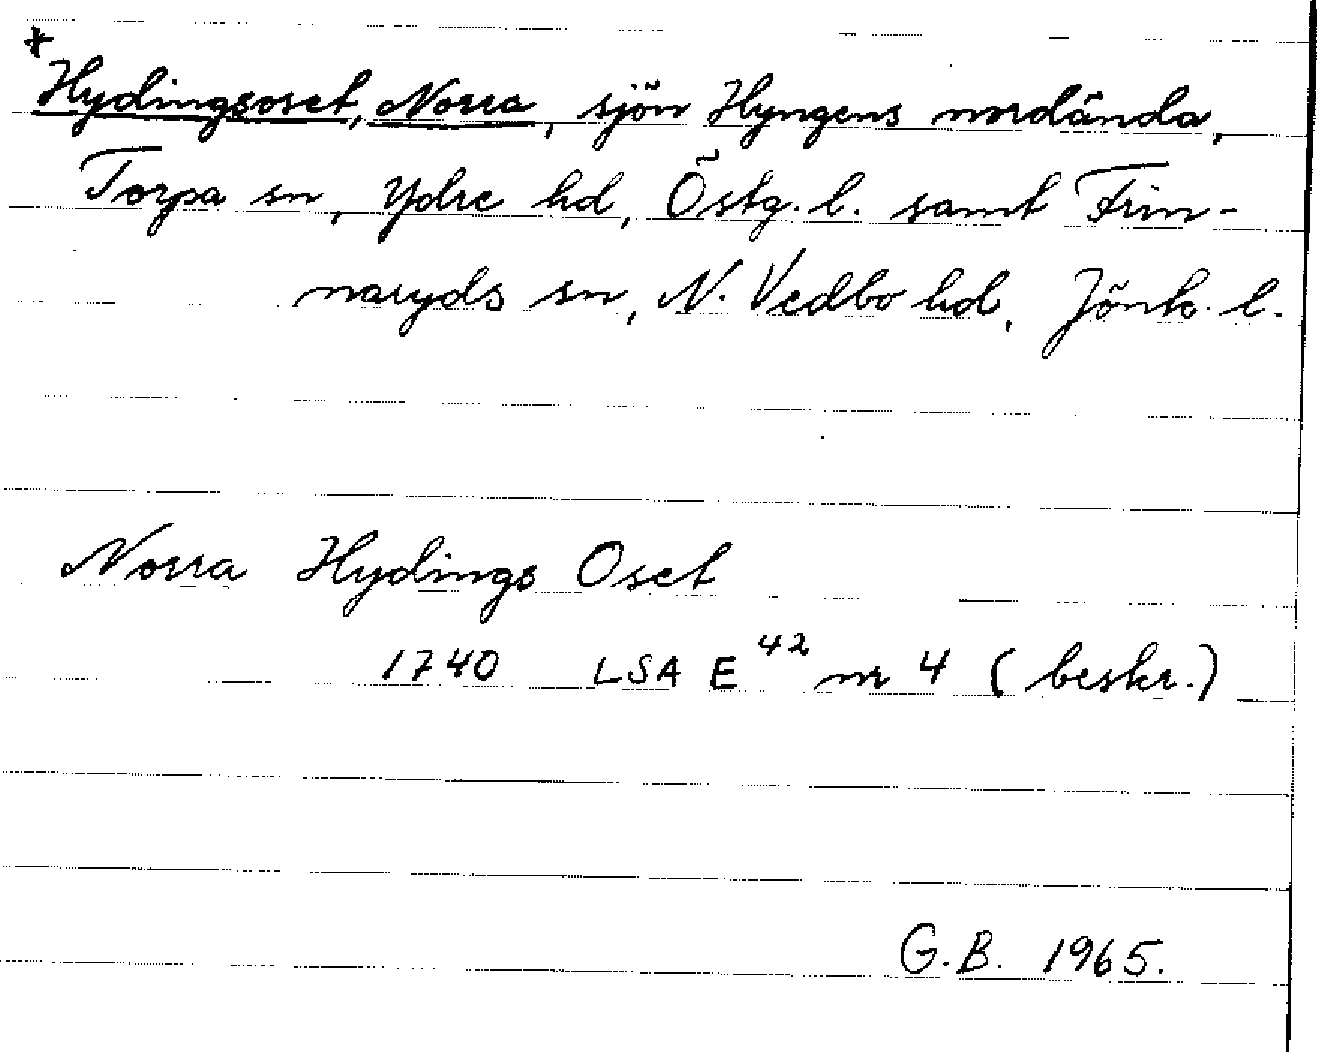 *Hydingsoset, Norra, sjön Hyngens nordända,
Torpa sn, Ydre hd, Östg. l. samt Frin-
naryds sn, N. Vedbo hd, Jönk. l.
Norra Hydings Oset
1740 LSA E 42 nr 4 (beskr.)
G.B. 1965.